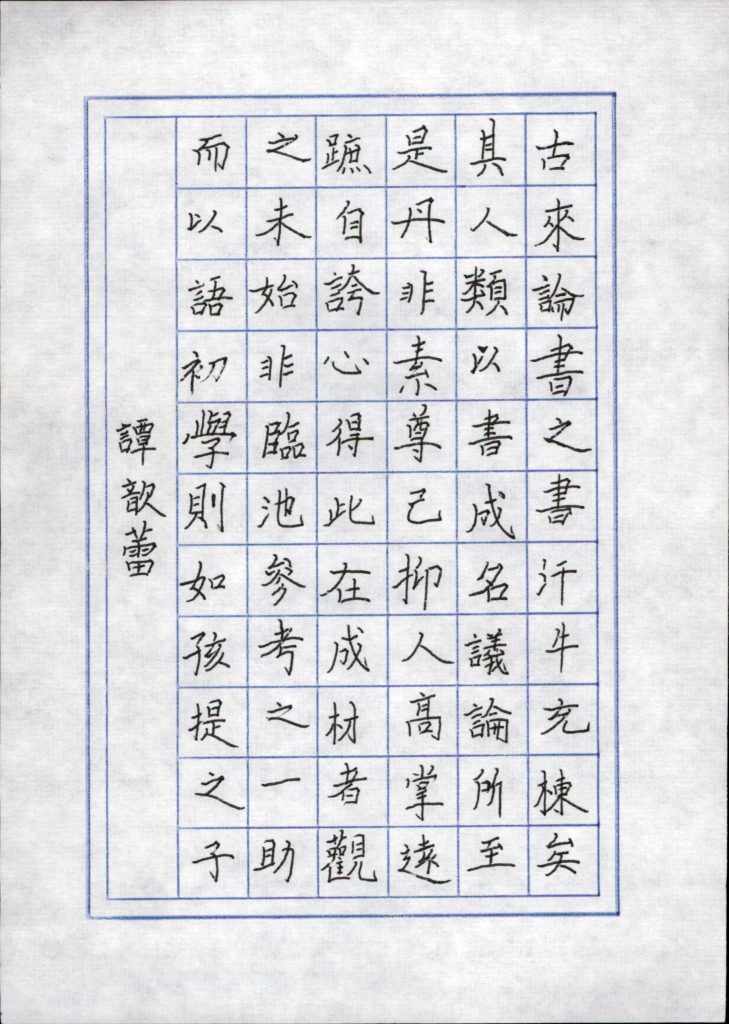 古來論書之書汗牛充棟矣
其人類以書成名議論所至
是丹非素尊己抑人高掌遠
蹠自誇心得此在成材者觀
之未始非臨池參考之一助
而以語初學則如孩提之子
譚歆蕾